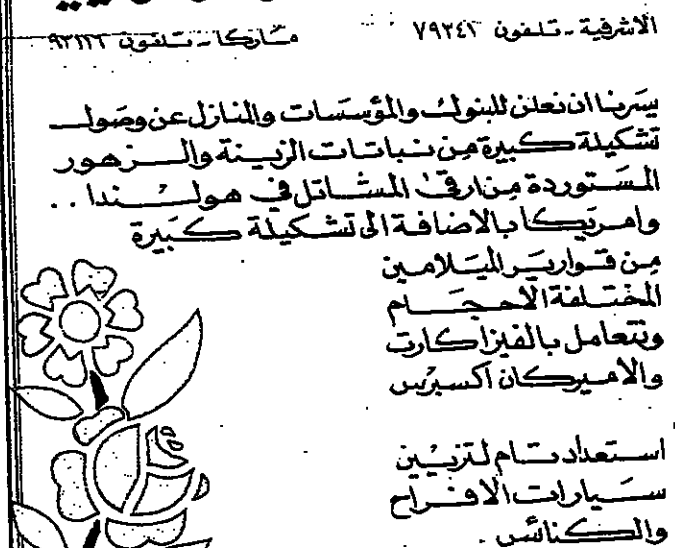 الاشرفية ـ تلفون ٧٩٢٤١ مـاركا ـ تـلفون ٩٢١١٦
يسرنا ان نعلن للبنوك والمؤسسات والمنازل عن وصول
تشكيلة كبيرة من نباتات الزينة والزهور
المستوردة من ارقى المشاتل في هولندا . .
وامريكا بالاضافة الى تشكيلة كبيرة
من قوارير الميلامين
المختلفة الاحجام
ونتعامل بالفيزا كارت
والاميركان اكسبرس
استعداد تام لتزيين
سيارات الافراح
والكنائس .